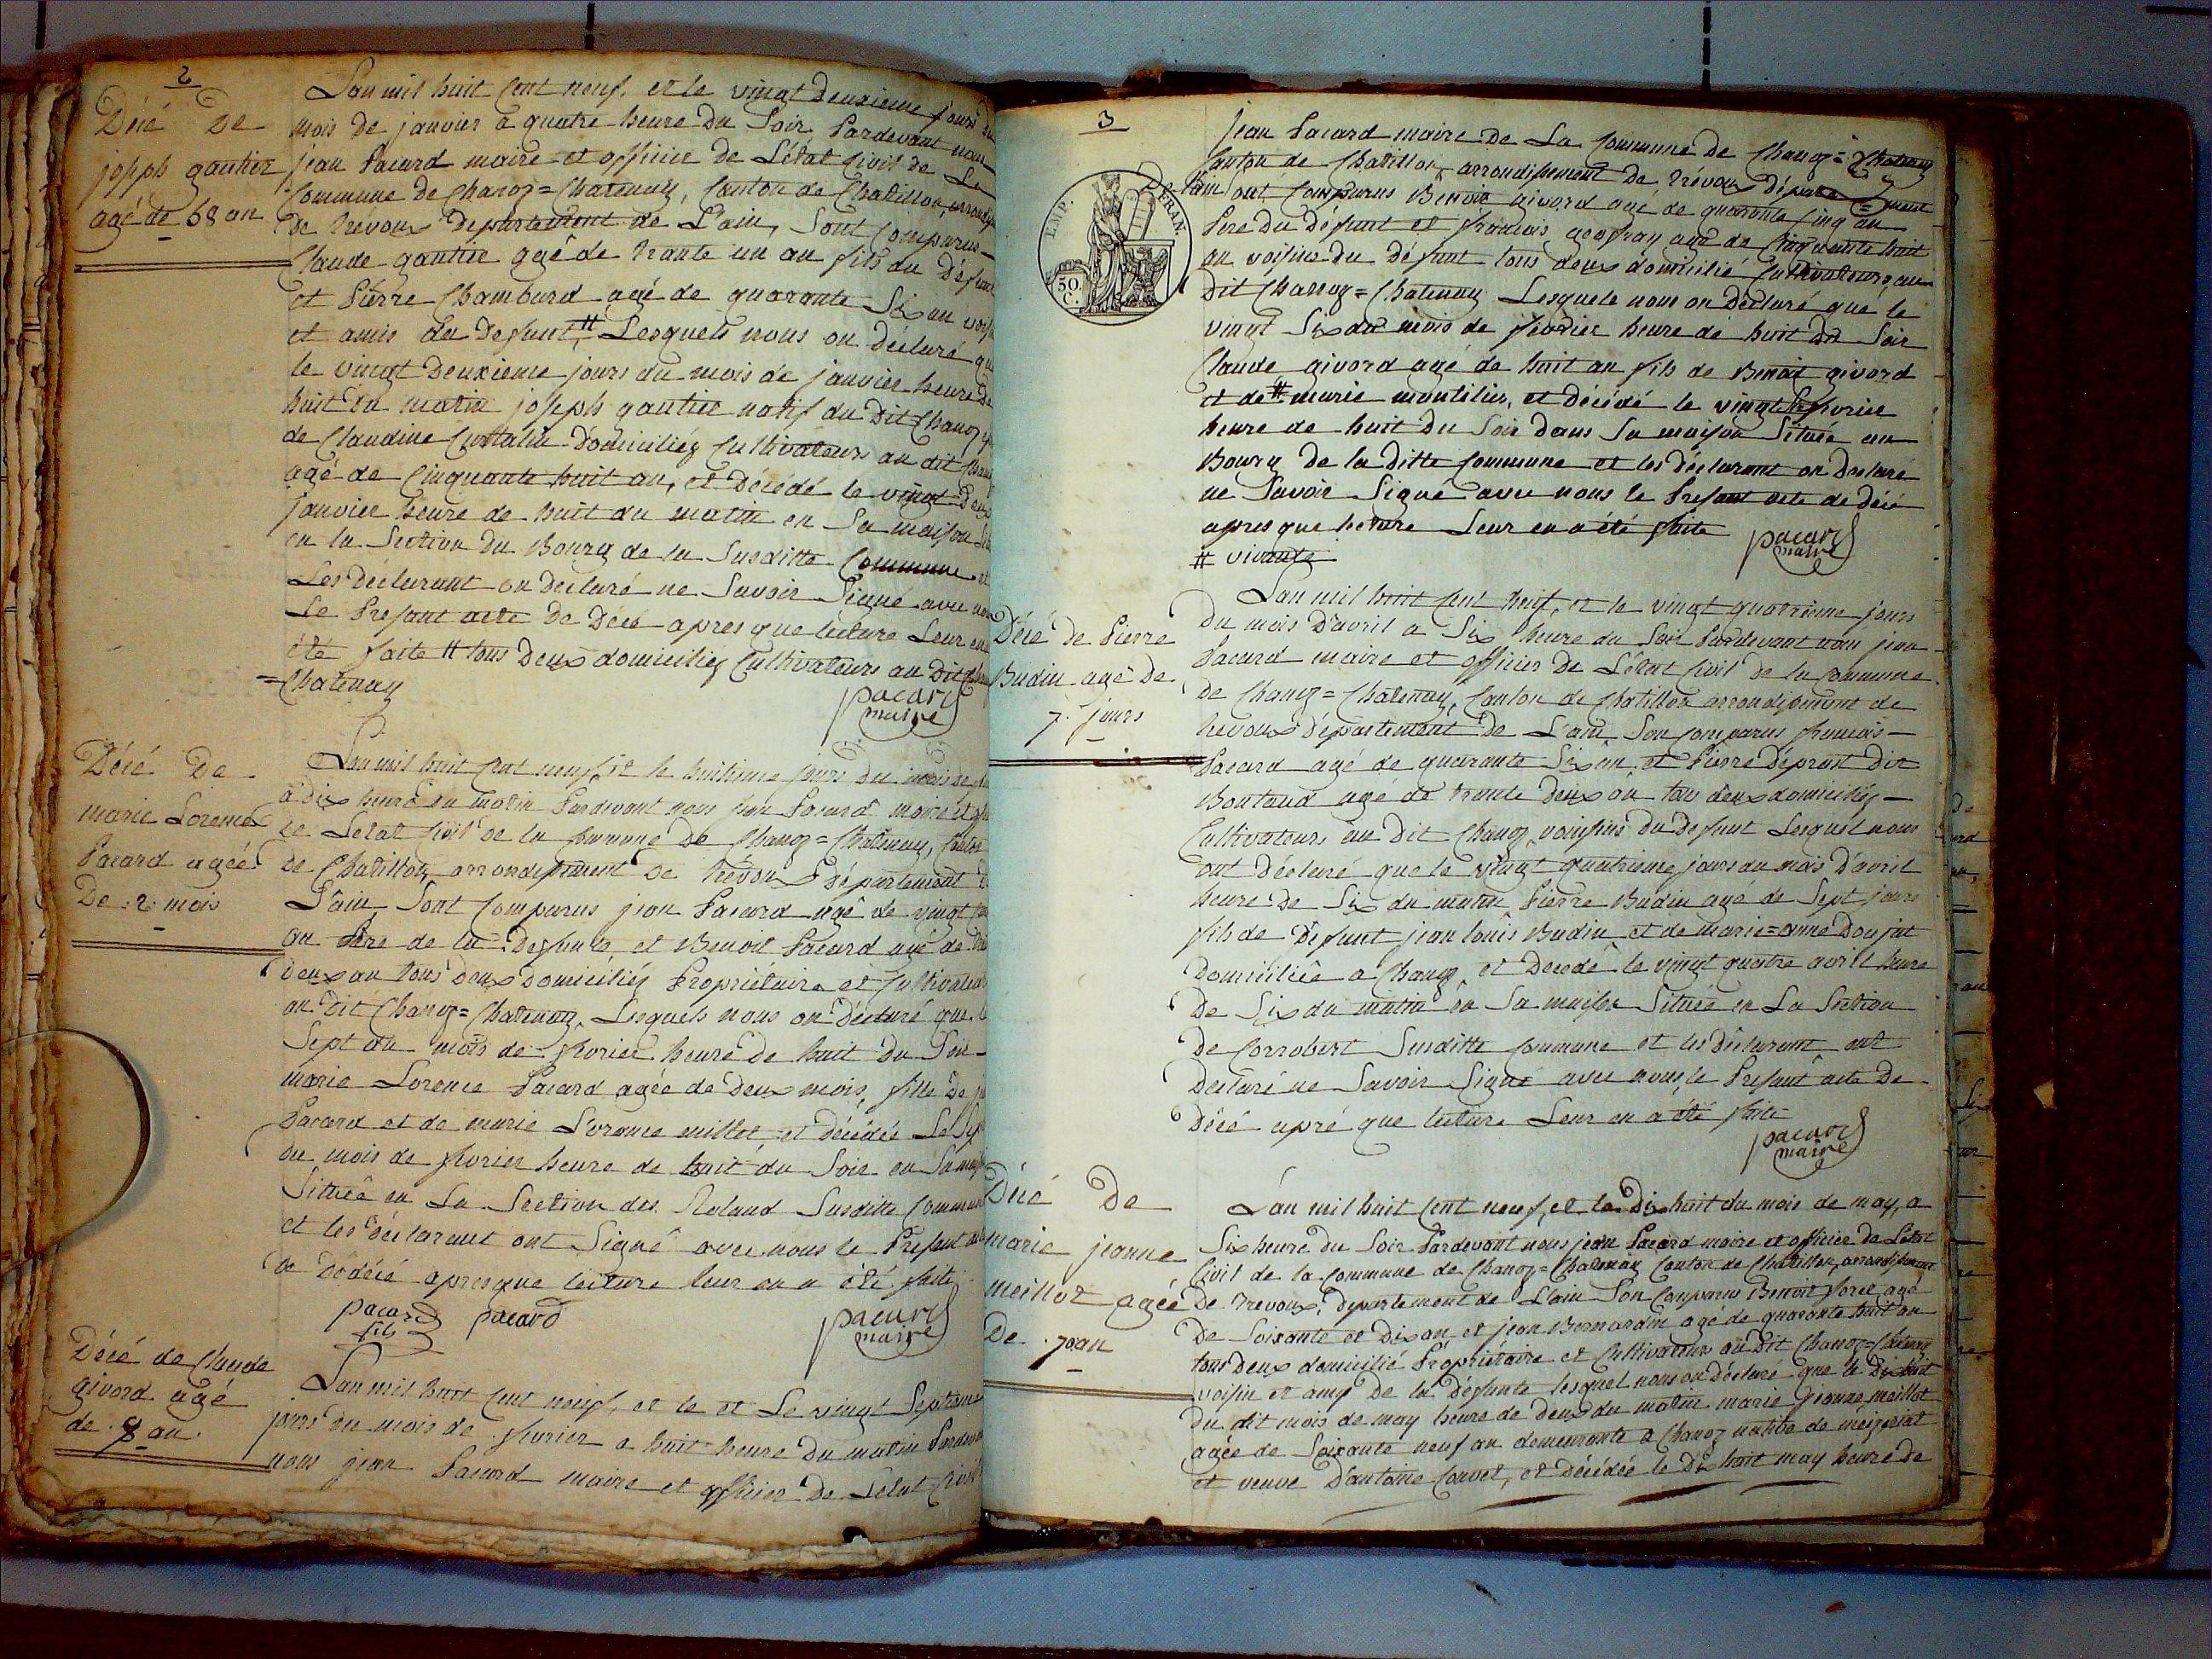 2
Décé De
joseph gautier
agé de 68 an
Lan mil huit Cent neuf, et le vingt deuxieme jours du
mois de janvier a quatre heure du Soir Pardevant nous
jean Pacard maire et officier de L'état Civil de La
Commune de Chanoz=Chatenay, Canton de Chatillon, arrondis
de Trévoux département de L'ain, Sont Comparus
Claude gautier agé de trante un an fils du défunt
et Piérre Chambard agé de quarante Six an voisin
et amis du defunt # Lesquels nous on déclaré que
le vingt deuxieme jours du mois de janvier heure de
huit du matin joseph gautier natif du dit Chanoz
de Claudine domiciliéz Cultivateurs au dit Chanoz
agé de Cinquante huit an, et décedé le vingt deux
janvier heure de huit du matin en Sa maison
en la Section du Bourg de la Susditte Commune et
Les déclarant on declaré ne Savoir Signé avec nous
Le Presant acte de décé apres que lecture Leur en a
été faite # tous deux domiciliéz Cultivateurs au dit Chanoz
=Chatenay
pacard
maire
Décé De
marie Lorence
Pacard agée
De 2 mois
Lan mil huit Cent neuf, et le huitieme jours du mois de
a dix heure du matin Pardevant nous jean Pacard maire et
de Letat Civil de la Commune De Chanoz=Chatenay, Canton
de Chatillon arrondisement de Trévoux département de
L'ain, Sont Comparus jean Pacard agé de vingt
an Pere de la defunte, et Benoit Pacard agé de
deux an tous deux domiciliéz Propriétaire et Cultivateur
au dit Chanoz=Chatenay, Lesquels nous on déclaré que le
Sept du mois de fevrier heure de huit du Soir
marie Lorence Pacard agée de deux mois, fille de
Pacard et de marie Lorance millet et décédée Le Sept
du mois de fevrier heure de huit du Soir en Sa maison
Situeé en La Section des Roland Susditte Commune
et les déclarant ont Signé avec nous le Presant acte
de dédécé apres que lecture leur en a été faite
pacard
fils
pacard
pacard
maire
Décé de Claude
givord agé
de 8 an
Lan mil huit Cent neuf, et le et Le vingt Septieme
jours du mois de fevrier a huit heure du matin Pardevant
nous jean Pacard maire et officier De Létat Civil
3
EMP. FRAN.
50.
C.
jean Pacard maire De La Commune de Chanoz=Chatenay
Canton de Chatillon, arrondissement De Trévoux département
De L'ain ont Comparus Benoit givord agé de quarante Cinq an
Pere du défunt et francois geofray agé de Cinquante huit
an voisins du défunt tous deux domicilié Cultivateurs au
Dit Chanoz=Chatenay Lesquels nous on déclaré que le
vingt Six du mois de fevrier heure de huit du Soir
Claude givord agé de huit an fils de Benoit givord
et de # marie montilier, et décédé le vingt Six fevrier
heure de huit du Soir dans Sa maison Située au
Bourg de la ditte Commune et les déclarant on declaré
ne Savoir Signé avec nous le Presant acte de décé
apres que lecture Leur en a été faite
# vivante
pacard
maire
Décé de Pierre
Budin agé de
7 jours
Lan mil huit Cent Neuf, et le vingt quatrieme jours
du mois D'avril a Six heure du Soir Pardevant nous jean
Pacard maire et officier de L'état Civil de la Commune
de Chanoz=Chatenay, Canton de Chatillon arrondissement de
trévoux département de L'ain Son Comparus francois
Pacard agé de quarante Six an, et Piérre déprost dit
Boutaud agé de trante deux an tous deux domiciliéz
Cultivateurs au dit Chanoz, voinsins du defunt Lesquel nous
ont déclaré que le vingt quatrieme jours du mois D'avril
heure de Six du matin Pierre Budin agé de Sept jours
fils de défunt jean louis Budin et de marie=anne Doujat
Domiciliée a Chanoz, et Décédé le vingt quatre avril heure
De Six du matin en Sa maison Située en La Section
De Corrobert Susditte Commune et les déclarant ont
Declaré ne Savoir Signé avec nous, le Presant acte De
Décé apré que lecture Leur en a été faite
pacard
maire
Décé De
marie jeanne
meillot agéé
De 70 an
L'an mil huit Cent neuf, et le Dix huit du mois de may, a
Six heure du Soir Pardevant nous jean Pacard maire et officier de L'état
Civil de la Commune de Chanoz=Chatenay Canton de Chatillon, arrondissement
De Trevoux, département de L'ain Son Comparus Benoit forel agé
De Soixante et Dix an et jean Bernardin agé de quarante huit an
tous Deux domicilié Propriétaire et Cultivateur au dit Chanoz=Chatenay
voisin et amy De la défunte lesquel nous on déclaré que le Dix huit
du dit mois de may heure de Deux du matin marie jeanne meillot
agée de Soixante neuf an demeurante a Chanoz native de mézeriat
et veuve D'antoine Couvet, et Décédée le Dix huit may heure de